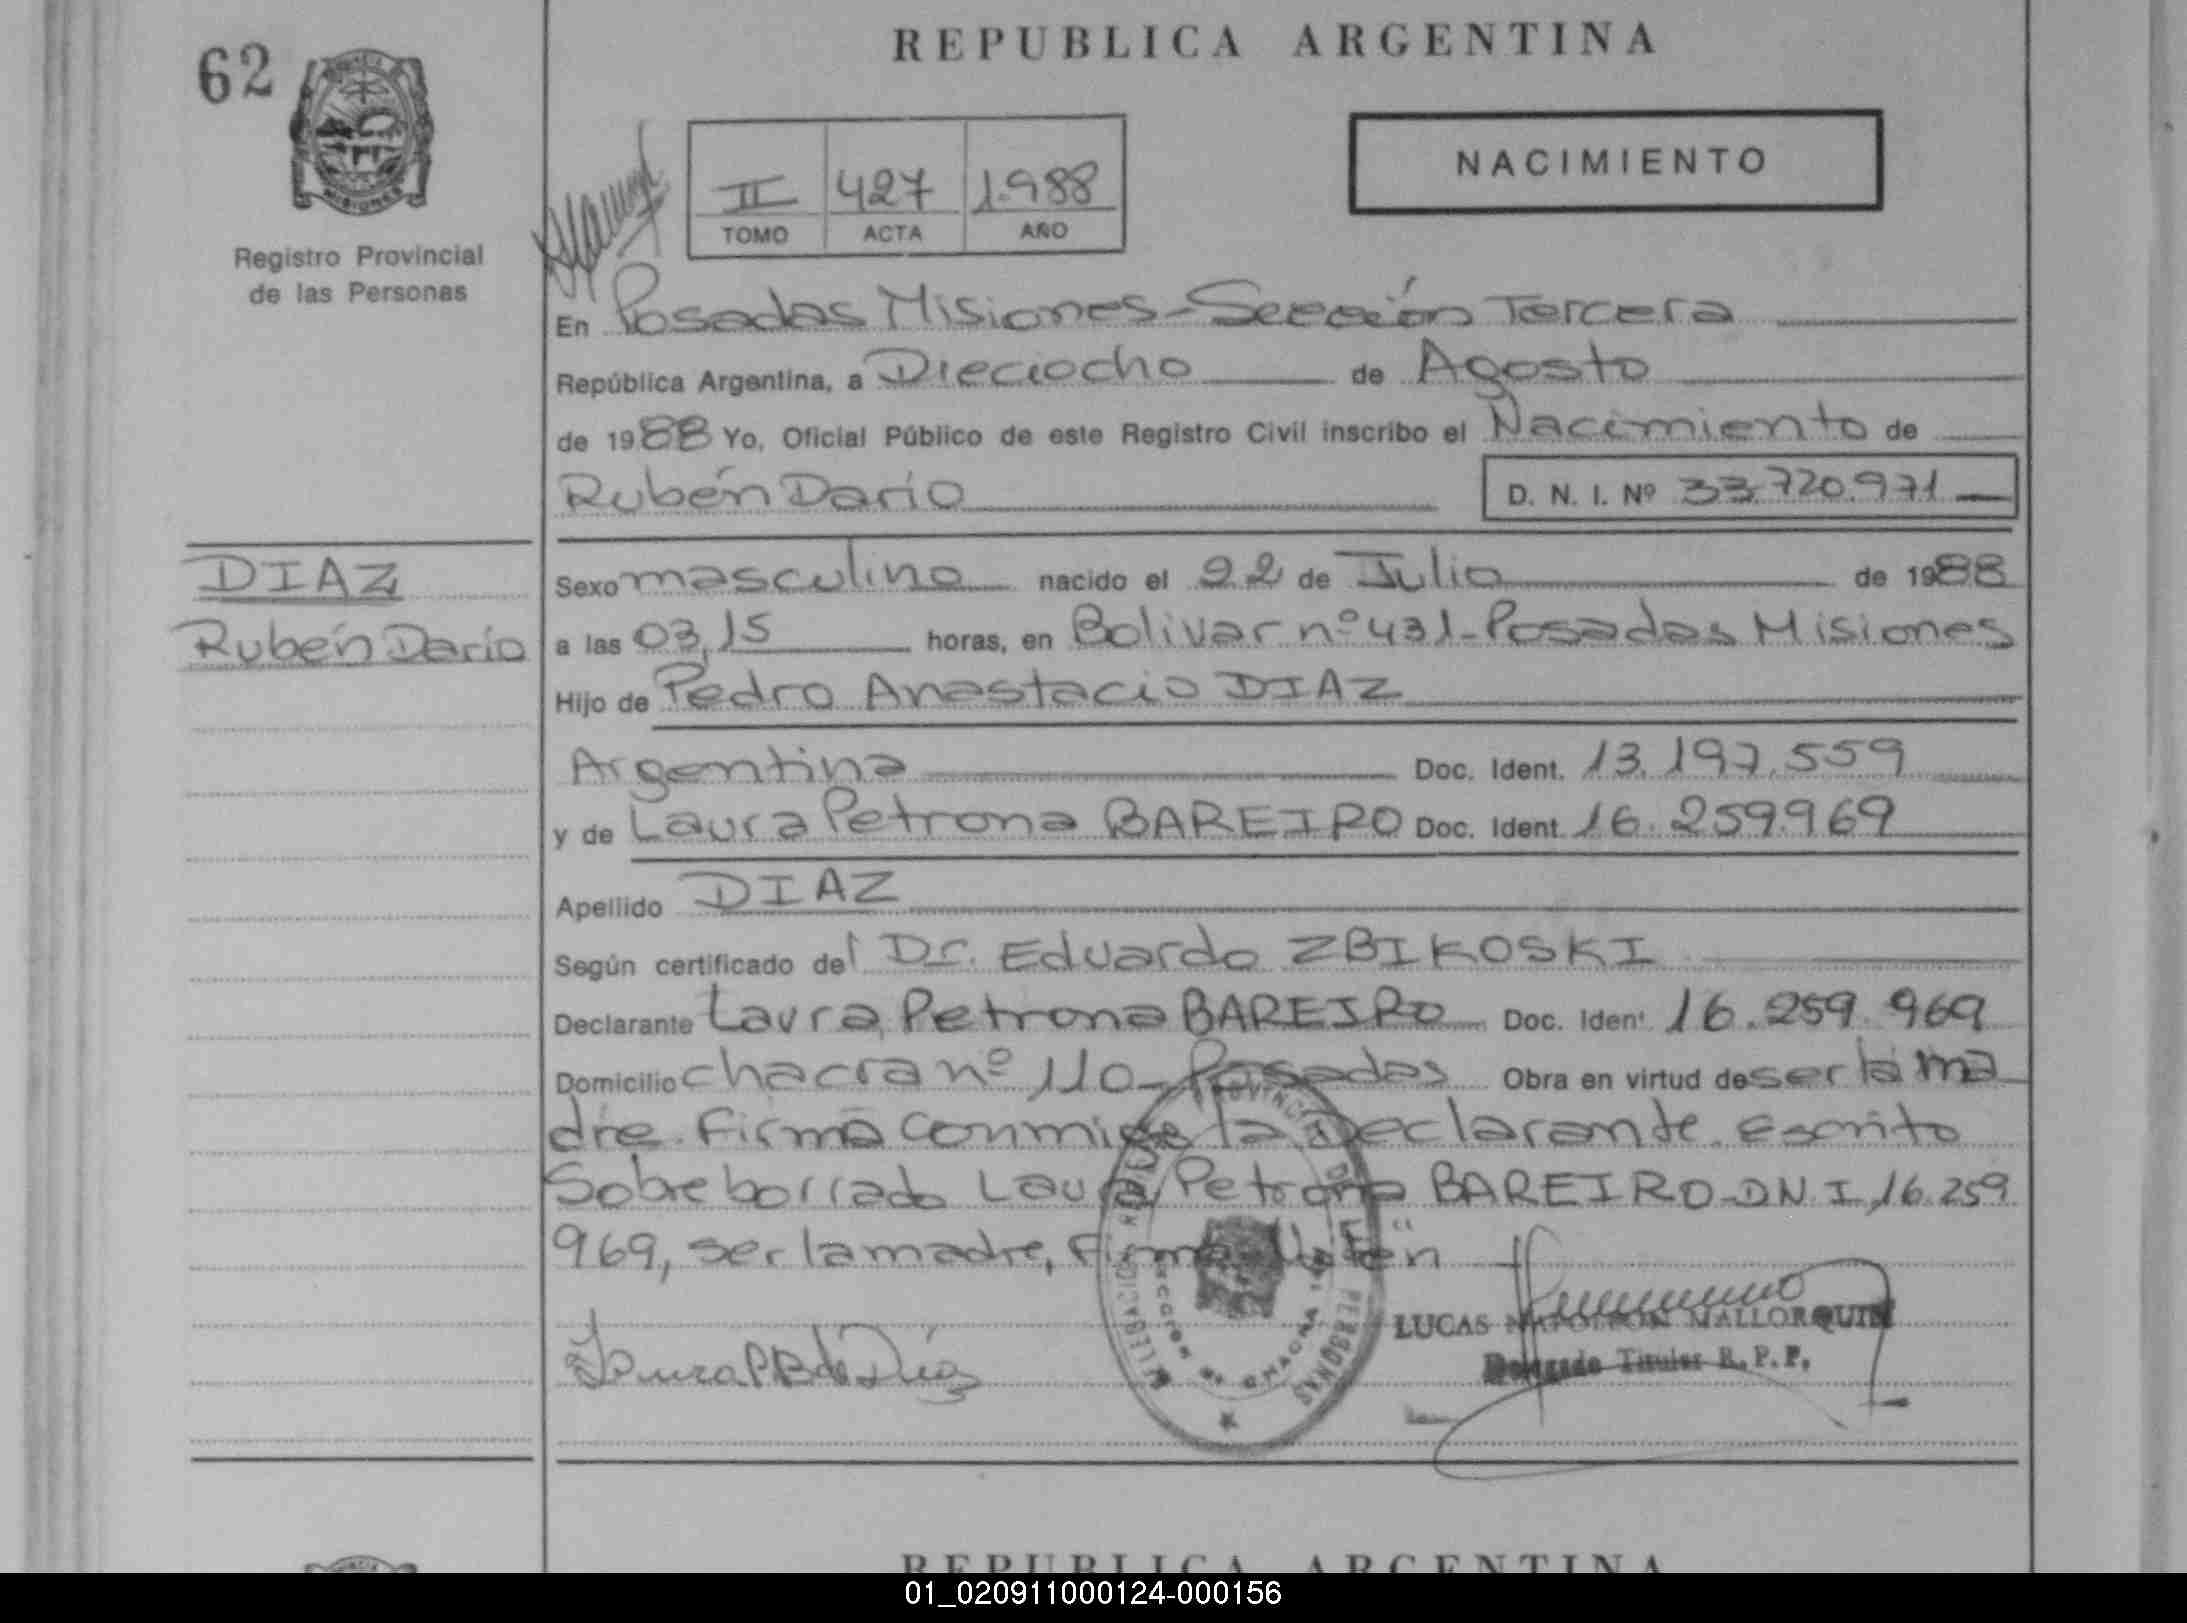 REPUBLICA ARGENTINA
62
NACIMIENTO
II 427 1.988
TOMO ACTA AÑO
Registro Provincial
de las Personas
En Posadas Misiones - Sección Tercera
República Argentina, a Dieciocho de Agosto
de 1988 Yo, Oficial Público de este Registro Civil inscribo el Nacimiento de
Rubén Dario D. N. I. Nº 33.720.971
DIAZ
Rubén Dario
Sexo masculino nacido el 22 de Julio de 1988
a las 03,15 horas, en Bolivar nº 431 - Posadas Misiones
Hijo de Pedro Anastacio DIAZ
Argentina Doc. Ident. 13.197.559
y de Laura Petrona BAREIRO Doc. Ident. 16.259.969
Apellido DIAZ
Según certificado del Dr. Eduardo ZBIKOSKI
Declarante Laura Petrona BAREIRO Doc. Ident. 16.259.969
Domicilio chacra nº 110 - Posadas Obra en virtud de ser la ma
dre. Firma conmigo la Declarante. Escrito
Sobreborrado Laura Petrona BAREIRO - D.N.I, 16.259
969, ser la madre,
Laura P B de Díaz
PROVINCIAL DE PERSONAS
DELEGACION
LUCAS NAPOLEON MALLORQUIN
Delegado Titular R. P. P.
REPUBLICA ARGENTINA
01_020911000124-000156